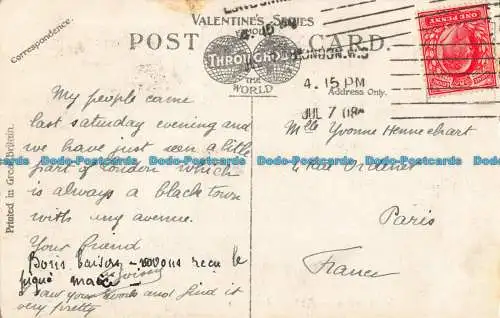 VALENTINE'S SERIES
FAMOUS
POST CARD.
THROUGHOUT
THE
WORLD
LONDON. W.S
4. 15 PM
JUL 7 08
ONE PENNY
Correspondence.
Address Only.
Printed in Great Britain.
My people came
last saturday evening and
we have just seen a little
part of London which
is always a black town
with my avenue.
Your friend
Bons baisers - avons reçu le
I saw your work and find it
very pretty
Mlle Yvonne Hennechart
4 Rue Ordener
Paris
France
Dodo-Postcards Dodo-Postcards Dodo-Postcards Dodo-Postcards Dodo-Postcards